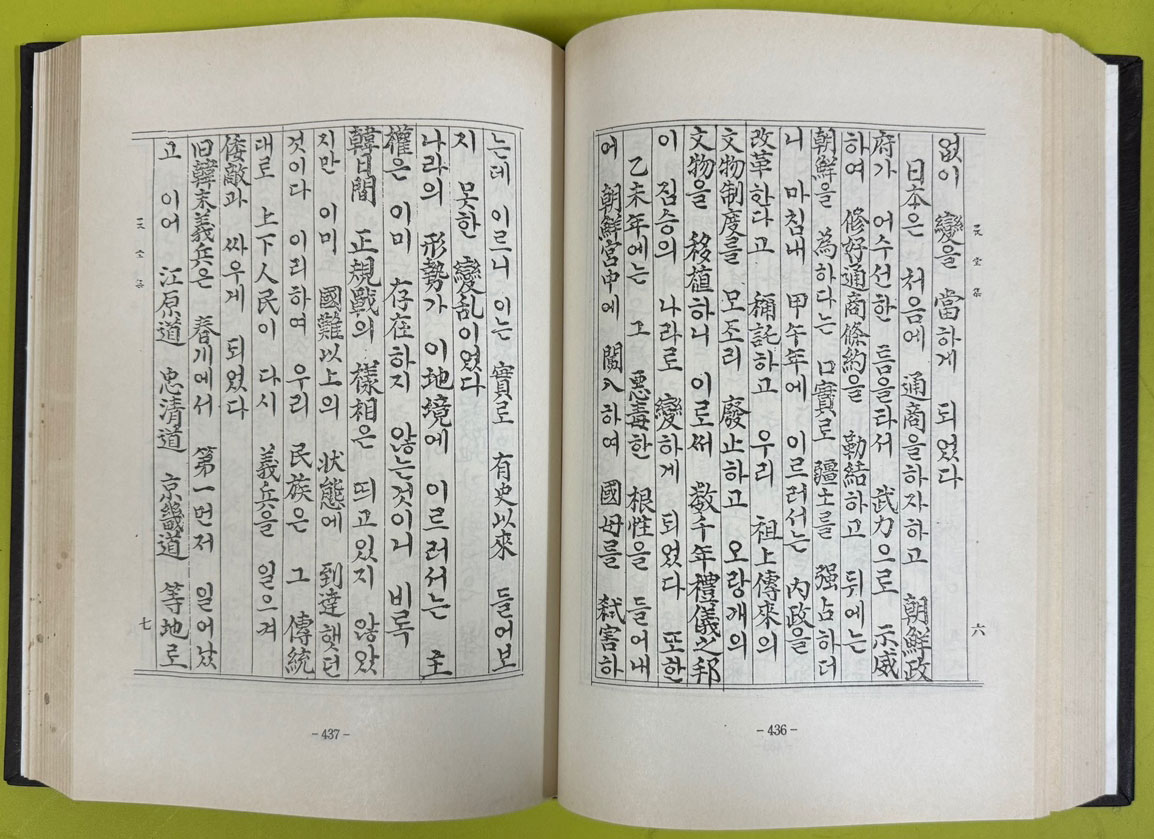 없이 變을 當하게 되었다
日本은 처음에 通商을하자하고 朝鮮政
府가 어수선한 틈을타서 武力으로 示威
하여 修好通商條約을 勒結하고 뒤에는
朝鮮을 為하다는 口實로 疆土를 强占하더
니 마침내 甲午年에 이르러서는 內政을
改革한다고 稱託하고 우리 祖上傳來의
文物制度를 모조리 廢止하고 오랑개의
文物을 移植하니 이로써 数千年禮儀之邦
이 짐승의 나라로 變하게 되었다 또한
乙未年에는 그 悪毒한 根性을 들어내
어 朝鮮宮中에 闖入하여 國母를 弑害하
六
- 436 -
는데 이르니 이는 實로 有史以來 들어보
지 못한 變乱이었다
나라의 形勢가 이地境에 이르러서는 主
權은 이미 存在하지 않는것이니 비록
韓日間 正規戰의 樣相은 띠고있지 않았
지만 이미 國難以上의 状態에 到達했던
것이다 이리하여 우리 民族은 그 傳統
대로 上下人民이 다시 義兵을 일으겨
倭敵과 싸우게 되었다
旧韓末義兵은 春川에서 第一먼저 일어났
고 이어 江原道 忠清道 京畿道 等地로
七
- 437 -